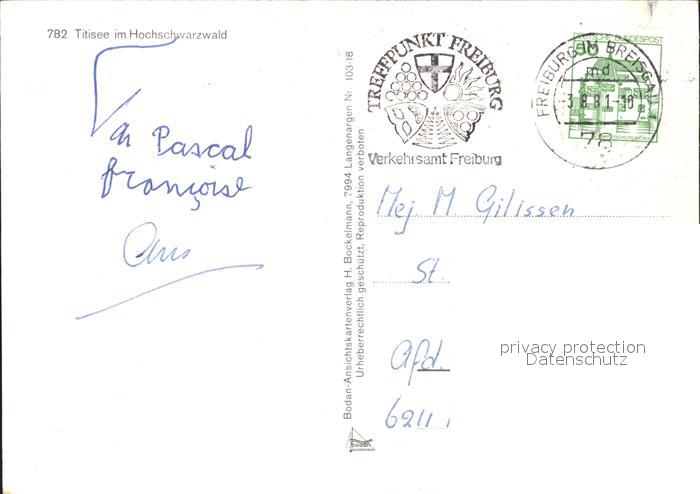 782 Titisee im Hochschwarzwald
Pascal
françoise
Bodan-Ansichtskartenverlag H. Bockelmann, 7994 Langenargen Nr. 103-18
Urheberrechtlich geschützt, Reproduktion verboten
bodan
TREFFPUNKT FREIBURG
Verkehrsamt Freiburg
FREIBURG IM BREISGAU 1
md
-3.8.81-18
78
DEUTSCHE BUNDESPOST
50
Mej. M. Gilissen
St.
Afd.
6211
privacy protection
Datenschutz